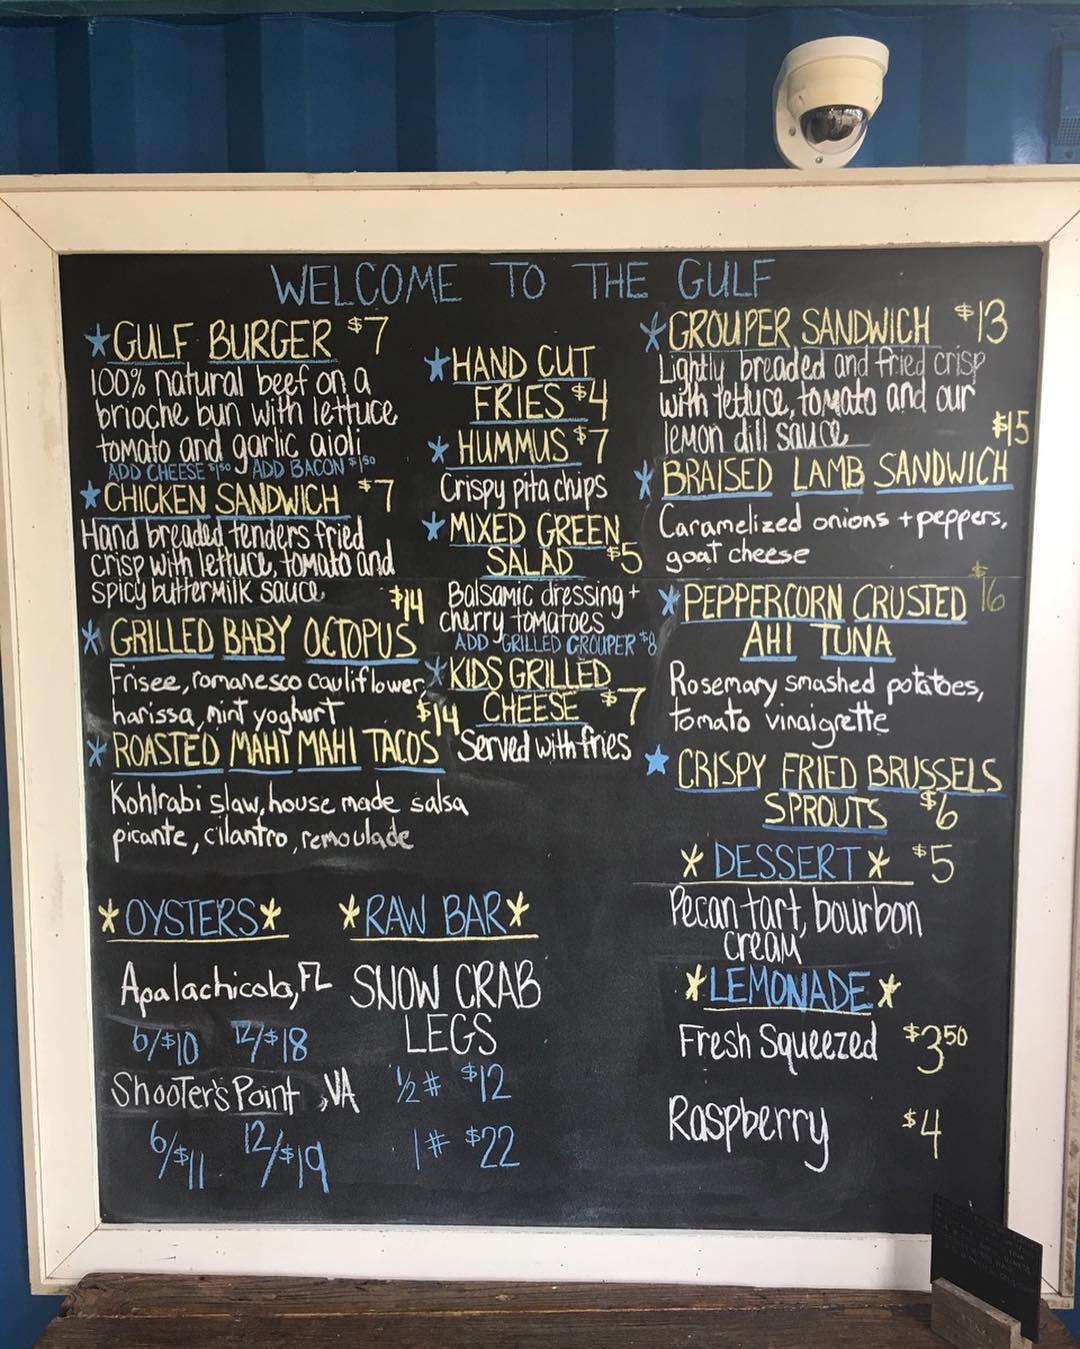 WELCOME TO THE GULF
GULF BURGER $7
100% natural beef on a
brioche bun with lettuce
tomato and garlic aioli
ADD CHEESE $1.50 ADD BACON $1.50
CHICKEN SANDWICH $7
Hand breaded tenders fried
crisp with lettuce, tomato and
spicy buttermilk sauce
$14
GRILLED BABY OCTOPUS
Frisee, romanesco cauliflower,
harissa, mint yoghurt
$14
ROASTED MAHI MAHI TACOS
Kohlrabi slaw, house made salsa
picante, cilantro, remoulade
HAND CUT
FRIES $4
HUMMUS $7
Crispy pita chips
MIXED GREEN
SALAD $5
Balsamic dressing +
cherry tomatoes
ADD GRILLED GROUPER $8
KIDS GRILLED
CHEESE $7
Served with fries
GROUPER SANDWICH $13
Lightly breaded and fried crisp
with lettuce, tomato and our
lemon dill sauce
$15
BRAISED LAMB SANDWICH
Caramelized onions + peppers,
goat cheese
$16
PEPPERCORN CRUSTED
AHI TUNA
Rosemary smashed potatoes,
tomato vinaigrette
CRISPY FRIED BRUSSELS
SPROUTS $6
DESSERT $5
Pecan tart, bourbon
cream
LEMONADE
Fresh Squeezed $3.50
Raspberry $4
OYSTERS
Apalachicola, FL
6/$10 12/$18
Shooter's Point, VA
6/$11 12/$19
RAW BAR
SNOW CRAB
LEGS
1/2 # $12
1 # $22